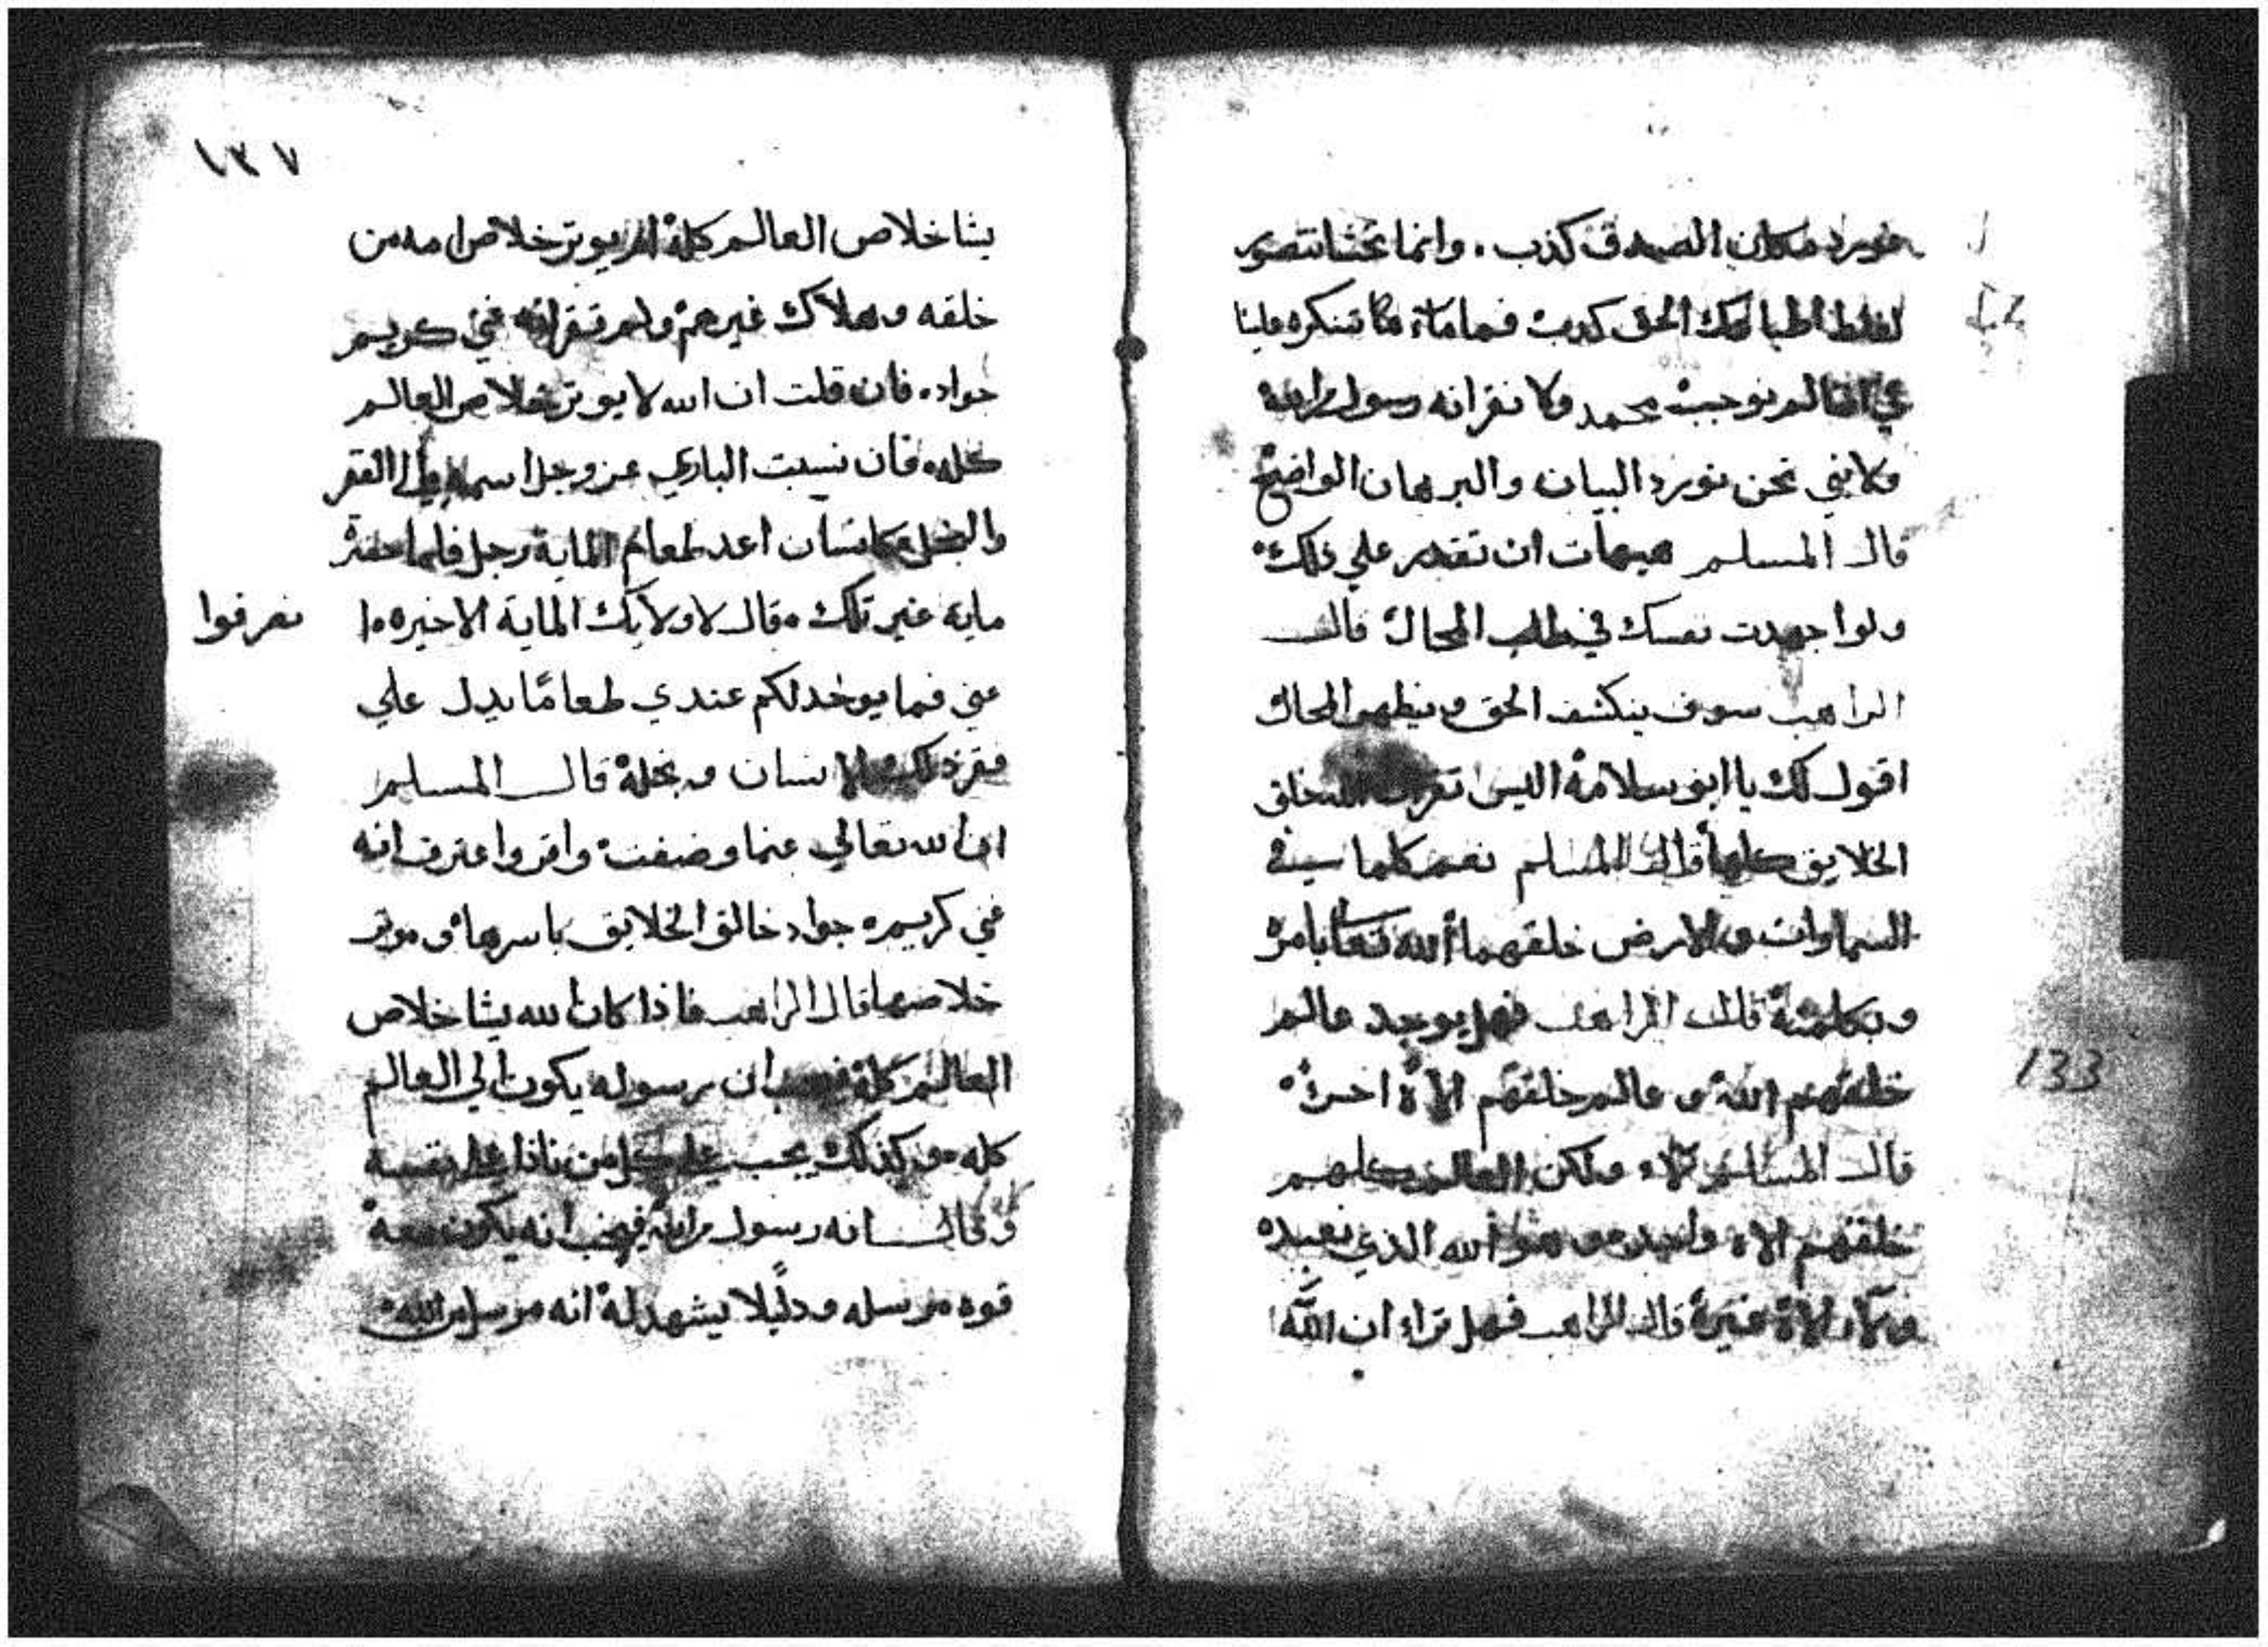 نورد مكان الصدق كذب. وانما نخشا نتصور
الحق كذبت فما
محمد ولا نقر انه رسول الله
ولا نني نحن نورد البيان والبرهان الواضح
قال المسلم هيهات ان تقدر علي ذلك
ولوا جهدت نفسك في طلب المحال قال
الراهب سوف ينكشف الحق ويظهر المحال
اقول لك يا ابو سلامة اليس تقر خلق
الخلايق كلها قال المسلم نعم كلما في
السماوات والارض خلقهما الله تعا بامره
وبكلمته قال الراهب فهل يوجد عالم
خلقهم الله و عالم خلقهم الاه اخره
قال المسلم لاء ولكن العالم كلهم
خلقهم الاه واحد وهوا الله الذي نعبده
ولاء الاه غيره قال الراهب فهل تراء ان الله
133
١٣٧
يشا خلاص العالم كله ام يوتر خلاص امه من
خلقه وهلاك غيرهم ولم تقر انه غني كريم
جواد. فان قلت ان الله لا يوتر خلاص العالم
كله فان نسبت الباري عز وجل اسمه الي الفقر
والبخل كانسان اعد طعام لماية رجل فلما حضر
ماية غير تلك قال لاولايك الماية الاخيره ا
نصرفوا
عني فما يوخد لكم عندي طعامًا يدل علي
فقر ذلك الانسان وبخله قال المسلم
ان الله تعالي عنما وصفت واقر واعترف انه
غني كريم جواد خالق الخلايق باسرها وموتر
خلاصها قال الراهب فاذا كان الله يشا خلاص
العالم كله فيجب ان رسوله يكون الي العالم
كله وكذلك يجب علي كل من نادا علي نفسه
وقال انه رسول من الله فيجب انه يكون معه
قوه مرسله ودليلا يشهد له انه مرسل من الله